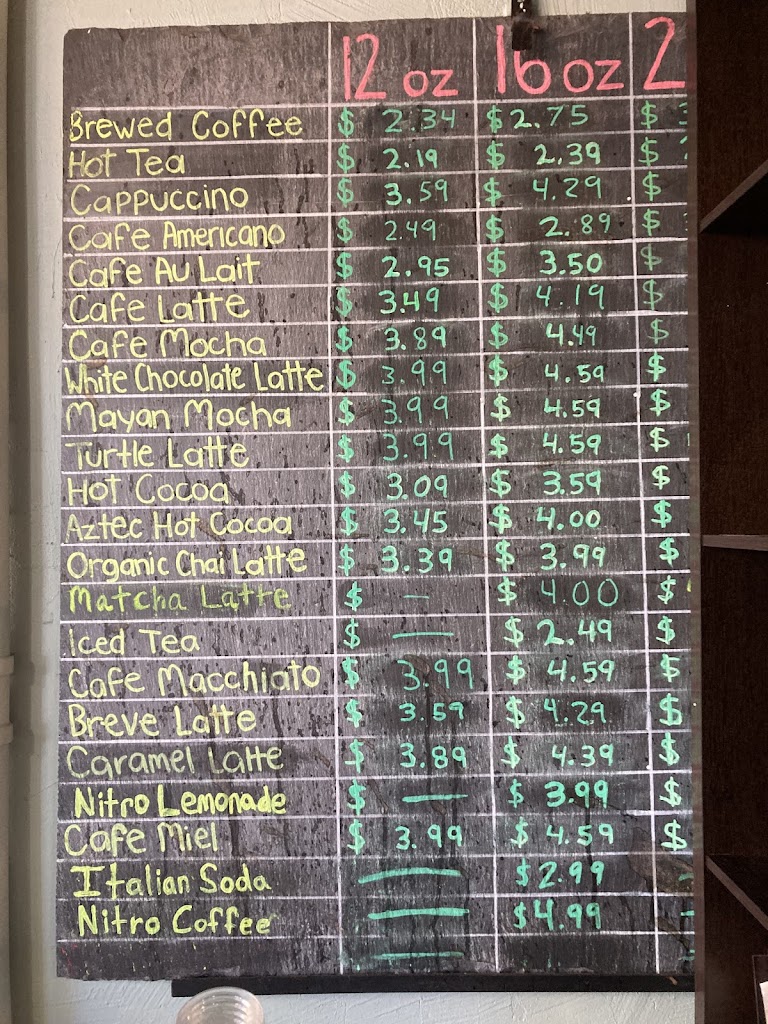 12 oz 16 oz 2
Brewed Coffee $ 2.34 $ 2.75 $
Hot Tea $ 2.19 $ 2.39 $
Cappuccino $ 3.59 $ 4.29 $
Cafe Americano $ 2.49 $ 2.89 $
Cafe Au Lait $ 2.95 $ 3.50 $
Cafe Latte $ 3.49 $ 4.19 $
Cafe Mocha $ 3.89 $ 4.49 $
White Chocolate Latte $ 3.99 $ 4.59 $
Mayan Mocha $ 3.99 $ 4.59 $
Turtle Latte $ 3.99 $ 4.59 $
Hot Cocoa $ 3.09 $ 3.59 $
Aztec Hot Cocoa $ 3.45 $ 4.00 $
Organic Chai Latte $ 3.39 $ 3.99 $
Matcha Latte $ — $ 4.00 $
Iced Tea $ — $ 2.49 $
Cafe Macchiato $ 3.99 $ 4.59 $
Breve Latte $ 3.59 $ 4.29 $
Caramel Latte $ 3.89 $ 4.39 $
Nitro Lemonade $ — $ 3.99 $
Cafe Miel $ 3.99 $ 4.59 $
Italian Soda — $2.99 —
Nitro Coffee — $4.99 —
—